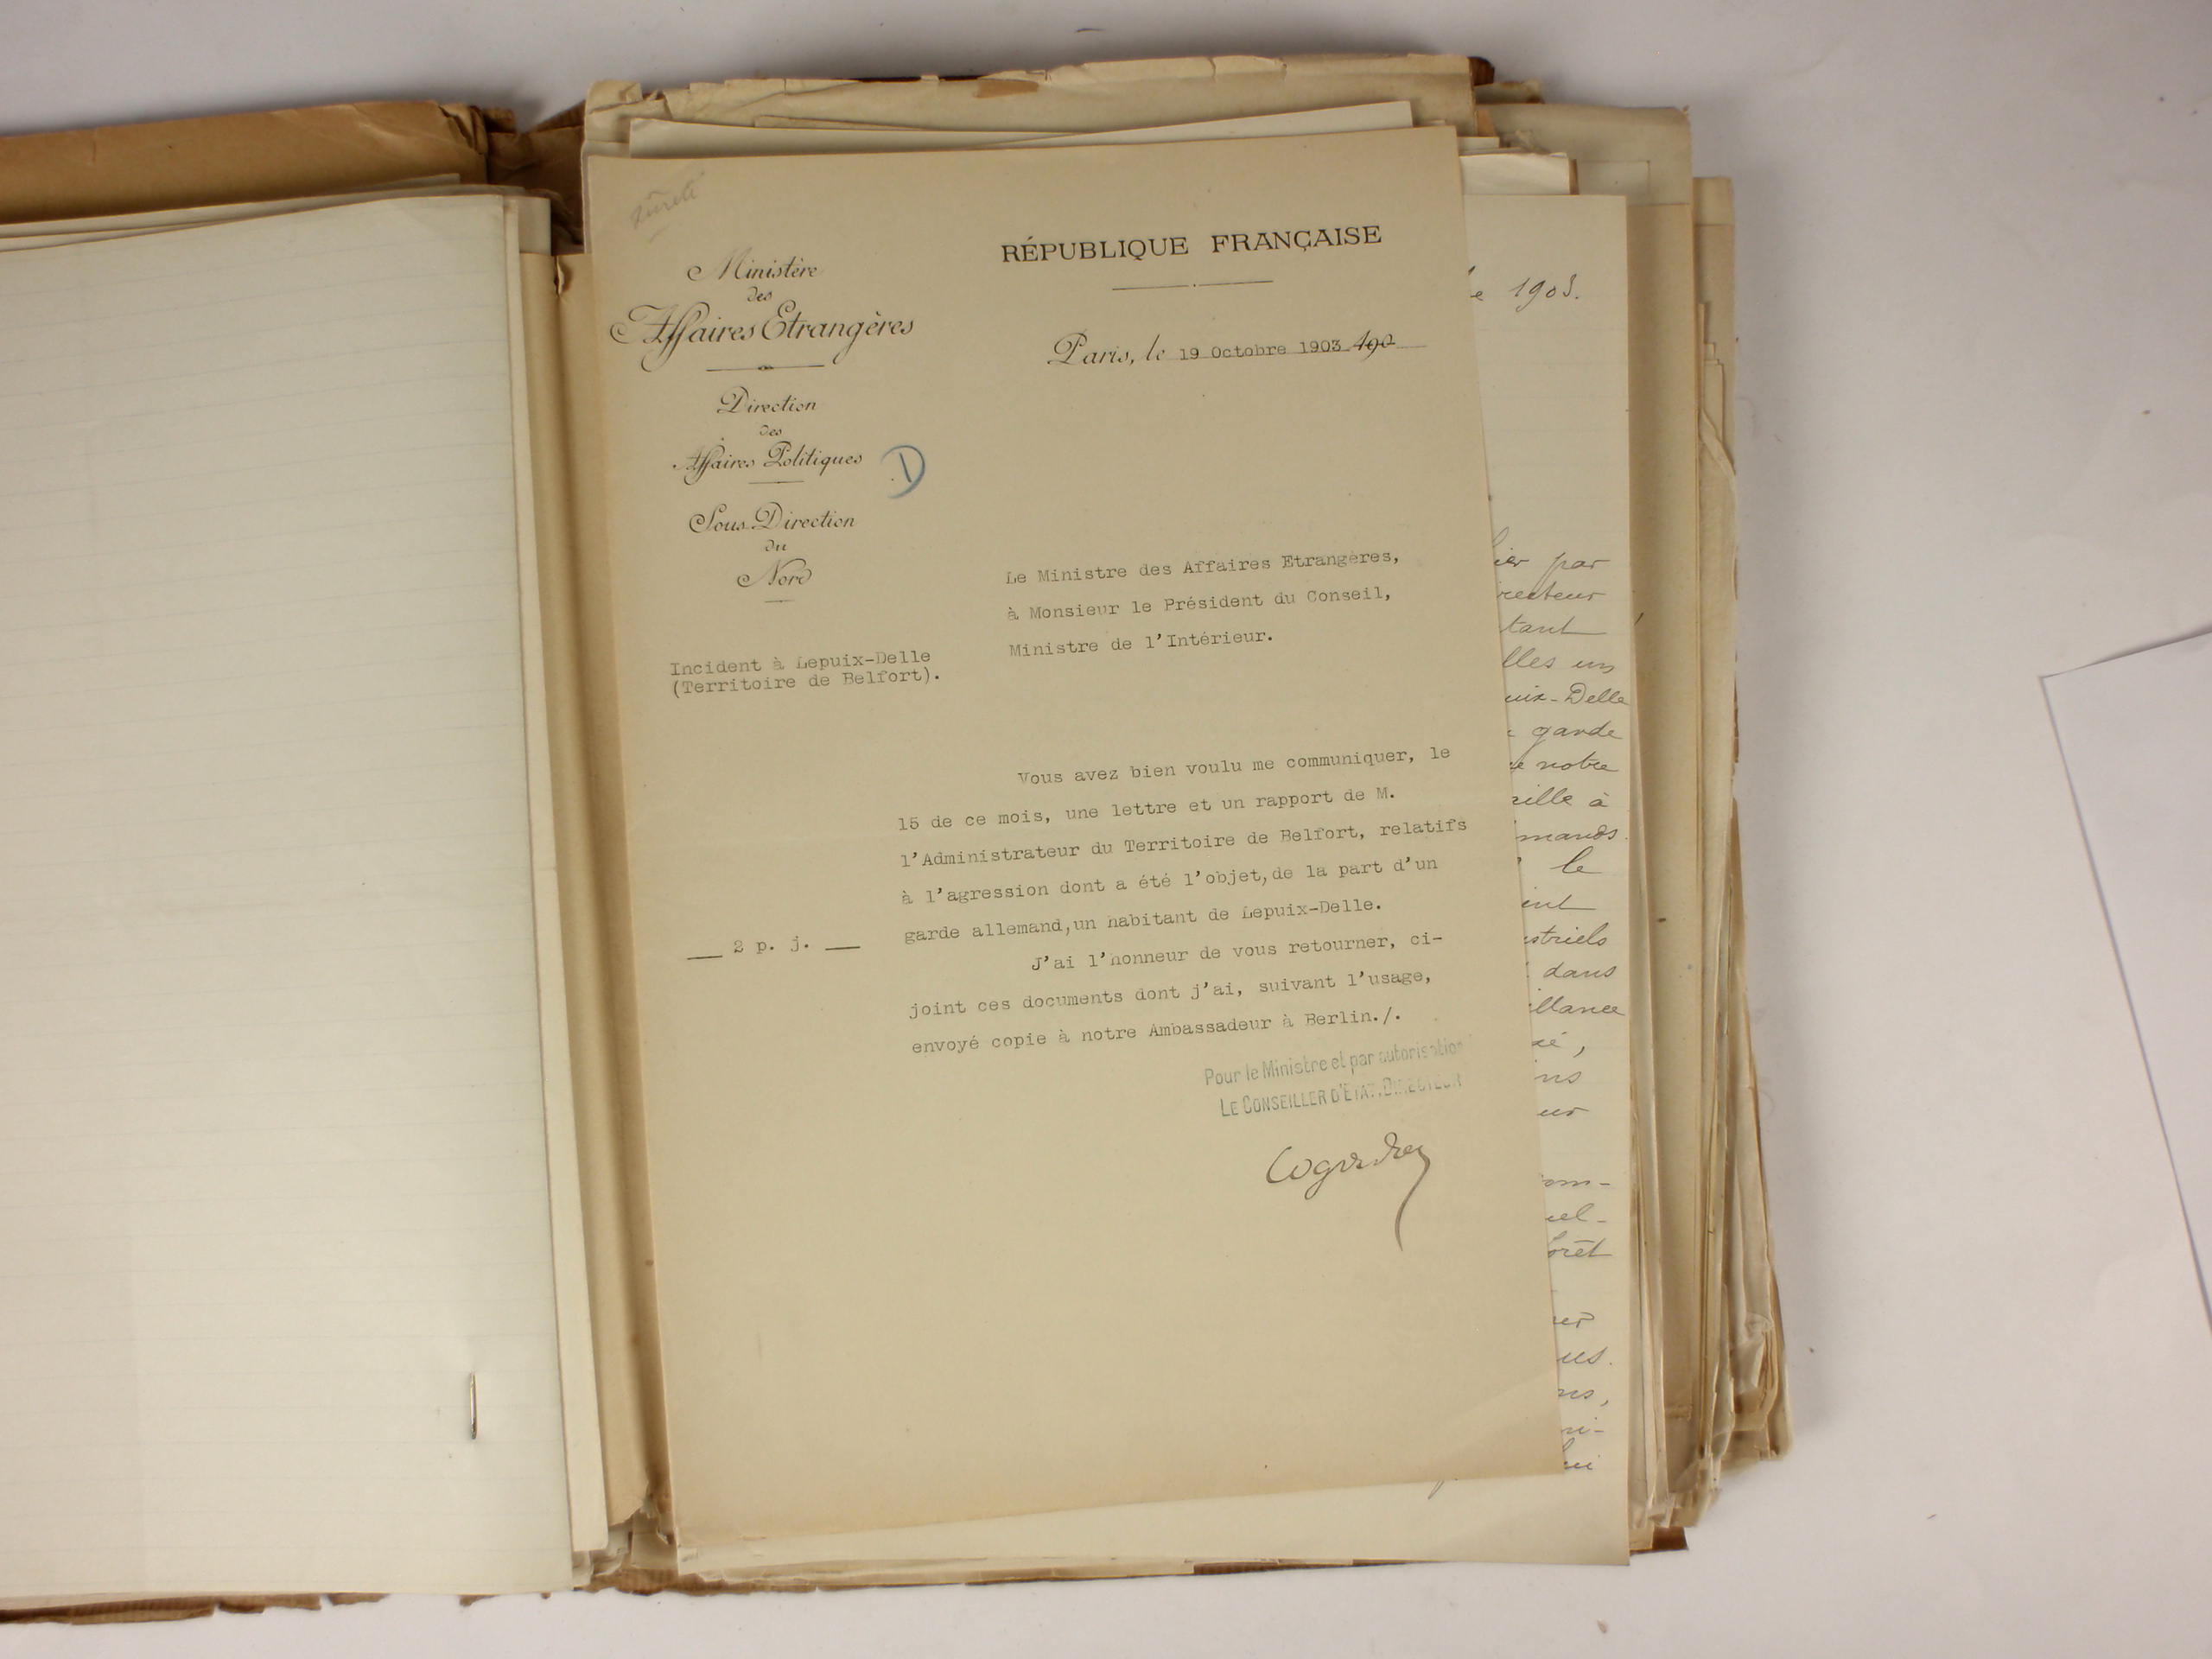 Sûreté
Ministère
des
Affaires Etrangères
Direction
des
Affaires Politiques
D
Sous Direction
du
Nord
RÉPUBLIQUE FRANÇAISE
Paris, le 19 Octobre 1903 190
Le Ministre des Affaires Etrangères,
à Monsieur le Président du Conseil,
Ministre de l'Intérieur.
Incident à Lepuix-Delle
(Territoire de Belfort).
Vous avez bien voulu me communiquer, le
15 de ce mois, une lettre et un rapport de M.
l'Administrateur du Territoire de Belfort, relatifs
à l'agression dont a été l'objet, de la part d'un
garde allemand, un habitant de Lepuix-Delle.
__ 2 p. j. __
J'ai l'honneur de vous retourner, ci-
joint ces documents dont j'ai, suivant l'usage,
envoyé copie à notre Ambassadeur à Berlin./.
Pour le Ministre et par autorisation
LE CONSEILLER D'ETAT, DIRECTEUR
1903.
par
recteur
tant
lles un
uix-Delle
garde
notre
eille à
mands.
le
ent
striels
dans
illance